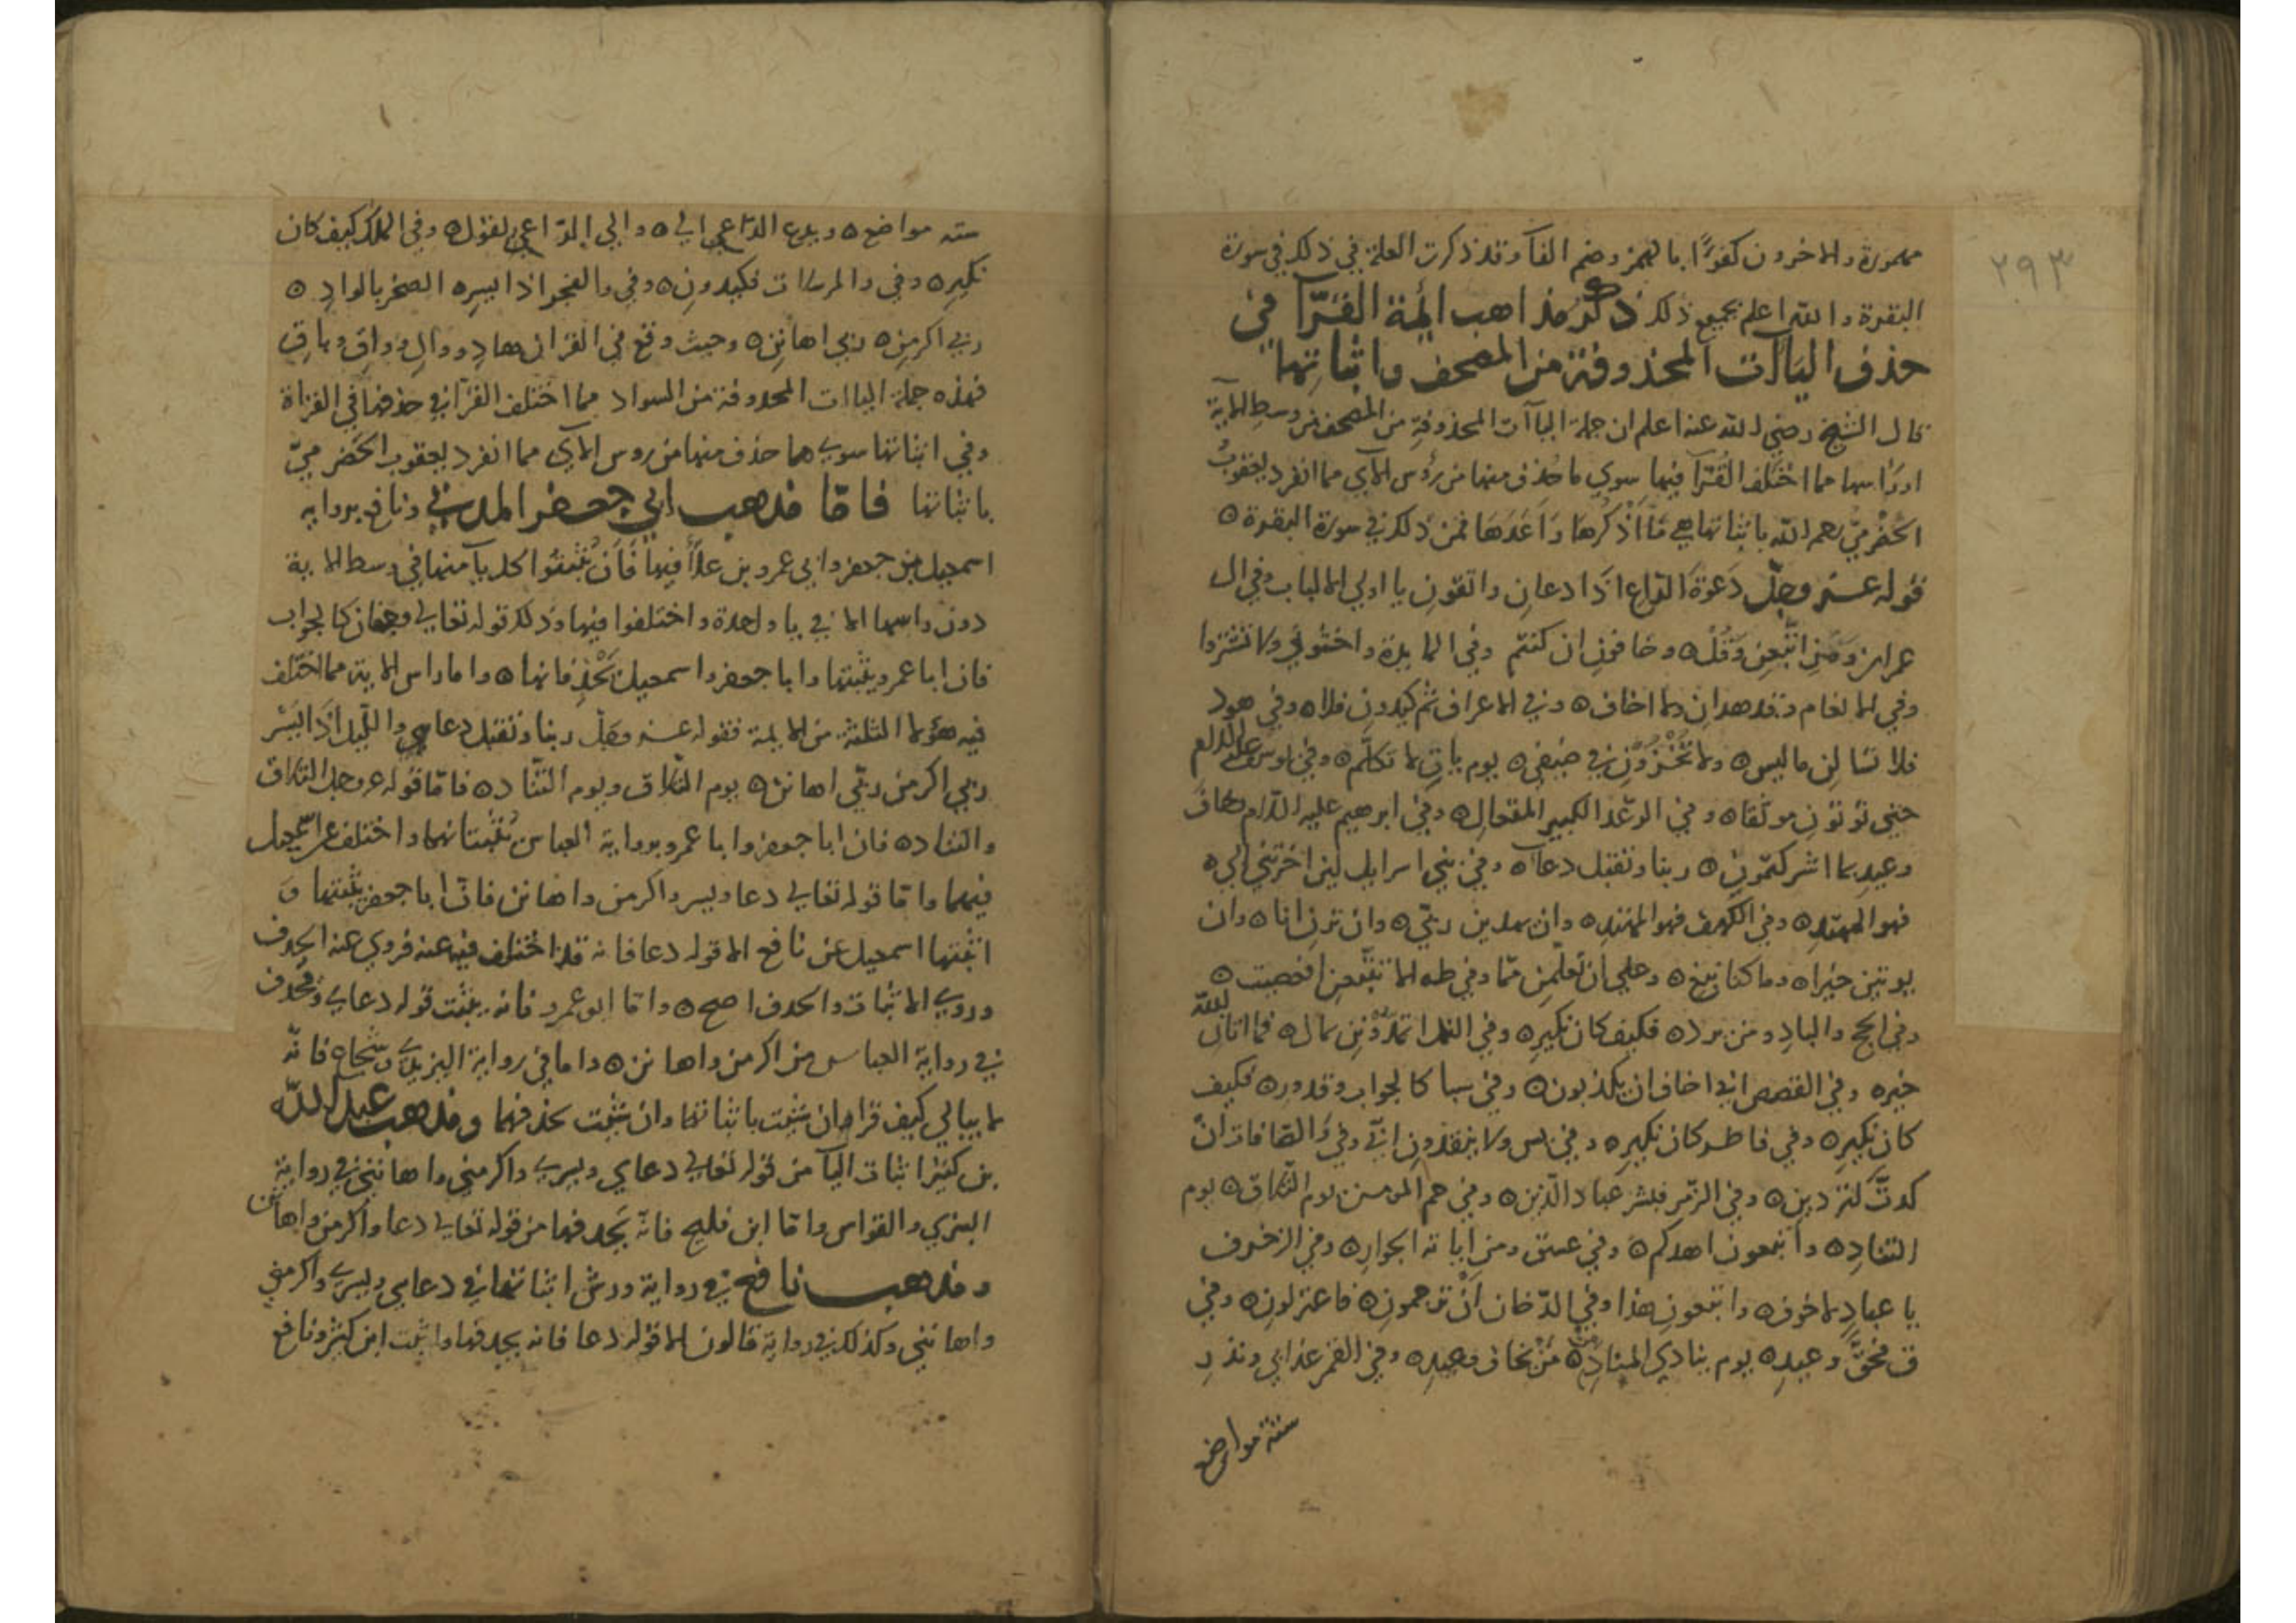 مهموزة والاخرون كفوًا بالهمز وضم الفآ وقد ذكرت العلة في ذلك في سورة
البقرة والله اعلم بجميع ذلك ذكر مذاهب ائمة القرّآ في
حذف اليآات المحذوفة من المصحف واثباتها
قال الشيخ رضي الله عنه اعلم ان جملة اليآات المحذوفة من المصحف من وسط الاية
او راسها مما اختلف القُرّآ فيها سوي ما حُذف منها من رؤس الآي مما انفرد يعقوبُ
الحَضْرميّ رحمه الله باثباتها هي مآ اذكرُها وَاَعَدَهَا فمن ذلك في سورة البقرة ه
قوله عز وجلّ دَعْوَةَ الدَّاعِ اذَا دعانِ واتقونِ يا اولي الالباب وفي ال
عمران وَمَنِ اتَّبعنِ وَقُلْ ه وخافونِ ان كنتم وفي المايدة واخشونِ ولا تشتروا
وفي الانعام وقد هدانِ ولا اخاف ه وفي الاعراف ثم كيدونِ فلا ه وفي هود
فلا تسالنِ ما ليس ه ولا تُخْزُوْنِ في ضيفي ه يوم ياتِ لا تكلّم ه وفي يوسف عليه السلم
حتي توتونِ موثقا ه وفي الرعد الكبير المتعالِ ه وفي ابرهيم عليه السلام وخاف
وعيدِ بما اشركتمونِ ه ربنا وتقبل دعآ ه وفي بني اسرايل لين اخرتنِ الي ه
فهو المهتدِ ه وفي الكهف فهو المهتدِ ه وان يهدين ربّي ه وان ترنِ انا ه وان
يوتين خيرا ه وما كنا نبغِ ه وعلي ان تعلّمنِ ممّا وفي طه الا تتّبعنِ افعصيت ه
وفي الحج والبادِ ومن يرد ه فكيف كان نكيرِ ه وفي النمل اتمدّوننِ بمال ه فما اتانِ الله
خير ه وفي القصص اني اخاف ان يكذبون ه وفي سبا كالجواب وقدور ه فكيف
كان نكيرِ ه وفي فاطر كان نكيرِ ه وفي يس ولا ينقذونِ انّي وفي وَالصّافات انْ
كدتّ لتردين ه وفي الزّمر فبشر عبادِ الّذين ه وفي حم المومن يوم التّلاق ه يوم
التنادِ ه واتبعون اهدكم ه وفي عسق ومن اياته الجوارِ ه وفي الزخرف
يا عبادِ لا خوف ه واتبعون هذا وفي الدّخان اَنْ ترجمونِ ه فاعتزلونِ ه وفي
ق فحَقَّ وعيدِ ه يوم ينادي المنادِ ه مَنْ يخاف وعيدِ ه وفي القمر عذابي ونذرِ
ستة مواضع
٢٩٣
سته مواضع ه ويدع الدّاعي الي ه والي الدّاعي يقول ه وفي الملك كيف كان
نكيرِ ه وفي والمرسلات فكيدونِ ه وفي والفجر اذا يسرِ ه الصخر بالوادِ ه
ربي اكرمنِ ه ربي اهاننِ ه وحيث وقع في القران هادِ ووالِ وواقِ وباقِ
فهذه جملة اليآات المحذوفة من السواد مما اختلف القرّآ في حذفها في القراة
وفي اثباتها سوي ما حذف منها من روس الآي مما انفرد يعقوب الحَضرميّ
باثباتها فامّا مذهب ابي جعفر المدني ونافع بروايه
اسمعيل بن جعفر وابي عمرو بن علآ فيها فَاَن يثبتوا كل يآ منها في وسط الاية
دون راسها الا في يا واحدة واختلفوا فيها وذلك قوله تعالي وجفان كالجواب
فان ابا عمرو يثبتها وابا جعفر واسمعيل يَحْذِفانها ه واما راس الاية مما اختلف
فيه هؤلا الثلثة من الايمة فقوله عز وجلّ ربنا وتقبل دعاي والليل اذا يَسْر
ربي اكرمن ربّي اهانن ه يوم التّلاق ويوم التّناد ه فامّا قوله عز وجل التلاق
والتناد ه فان ابا جعفر وابا عمرو برواية العباس يُثبتانهما واختلف عن اسمعيل
فيهما وامّا قوله تعالي دعا ويسر واكرمن واهانن فانّ ابا جعفر يثبتها وَ
اثبتها اسمعيل عن نافع الا قوله دعا فانه قد اختلف فيه عنه فروي عنه الحذف
وروي الاثبات والحذف اصح ه وامّا ابو عمرو فانه يثبت قوله دعاي ويحذف
في رواية العباس من اكرمن واهانن ه واما في رواية اليزيديّ وشجاع فانّه
لا يبالي كيف قراه ان شيت باثباتها وان شيت بحذفهما ومذهب عبد الله
بن كثير اثبات اليآ من قوله تعالي دعاي ويسري واكرمني واهانني في رواية
البزي والقواس وامّا ابن فليح فانّه يَحذفها من قوله تعالي دعا واكرمن واهانن
ومذهب نافع في رواية ورش اثباتها في دعاي ويسري واكرمني
واهانني وكذلك في رواية قالون الا قوله دعا فانه يحذفها واثبت ابن كثير ونافع